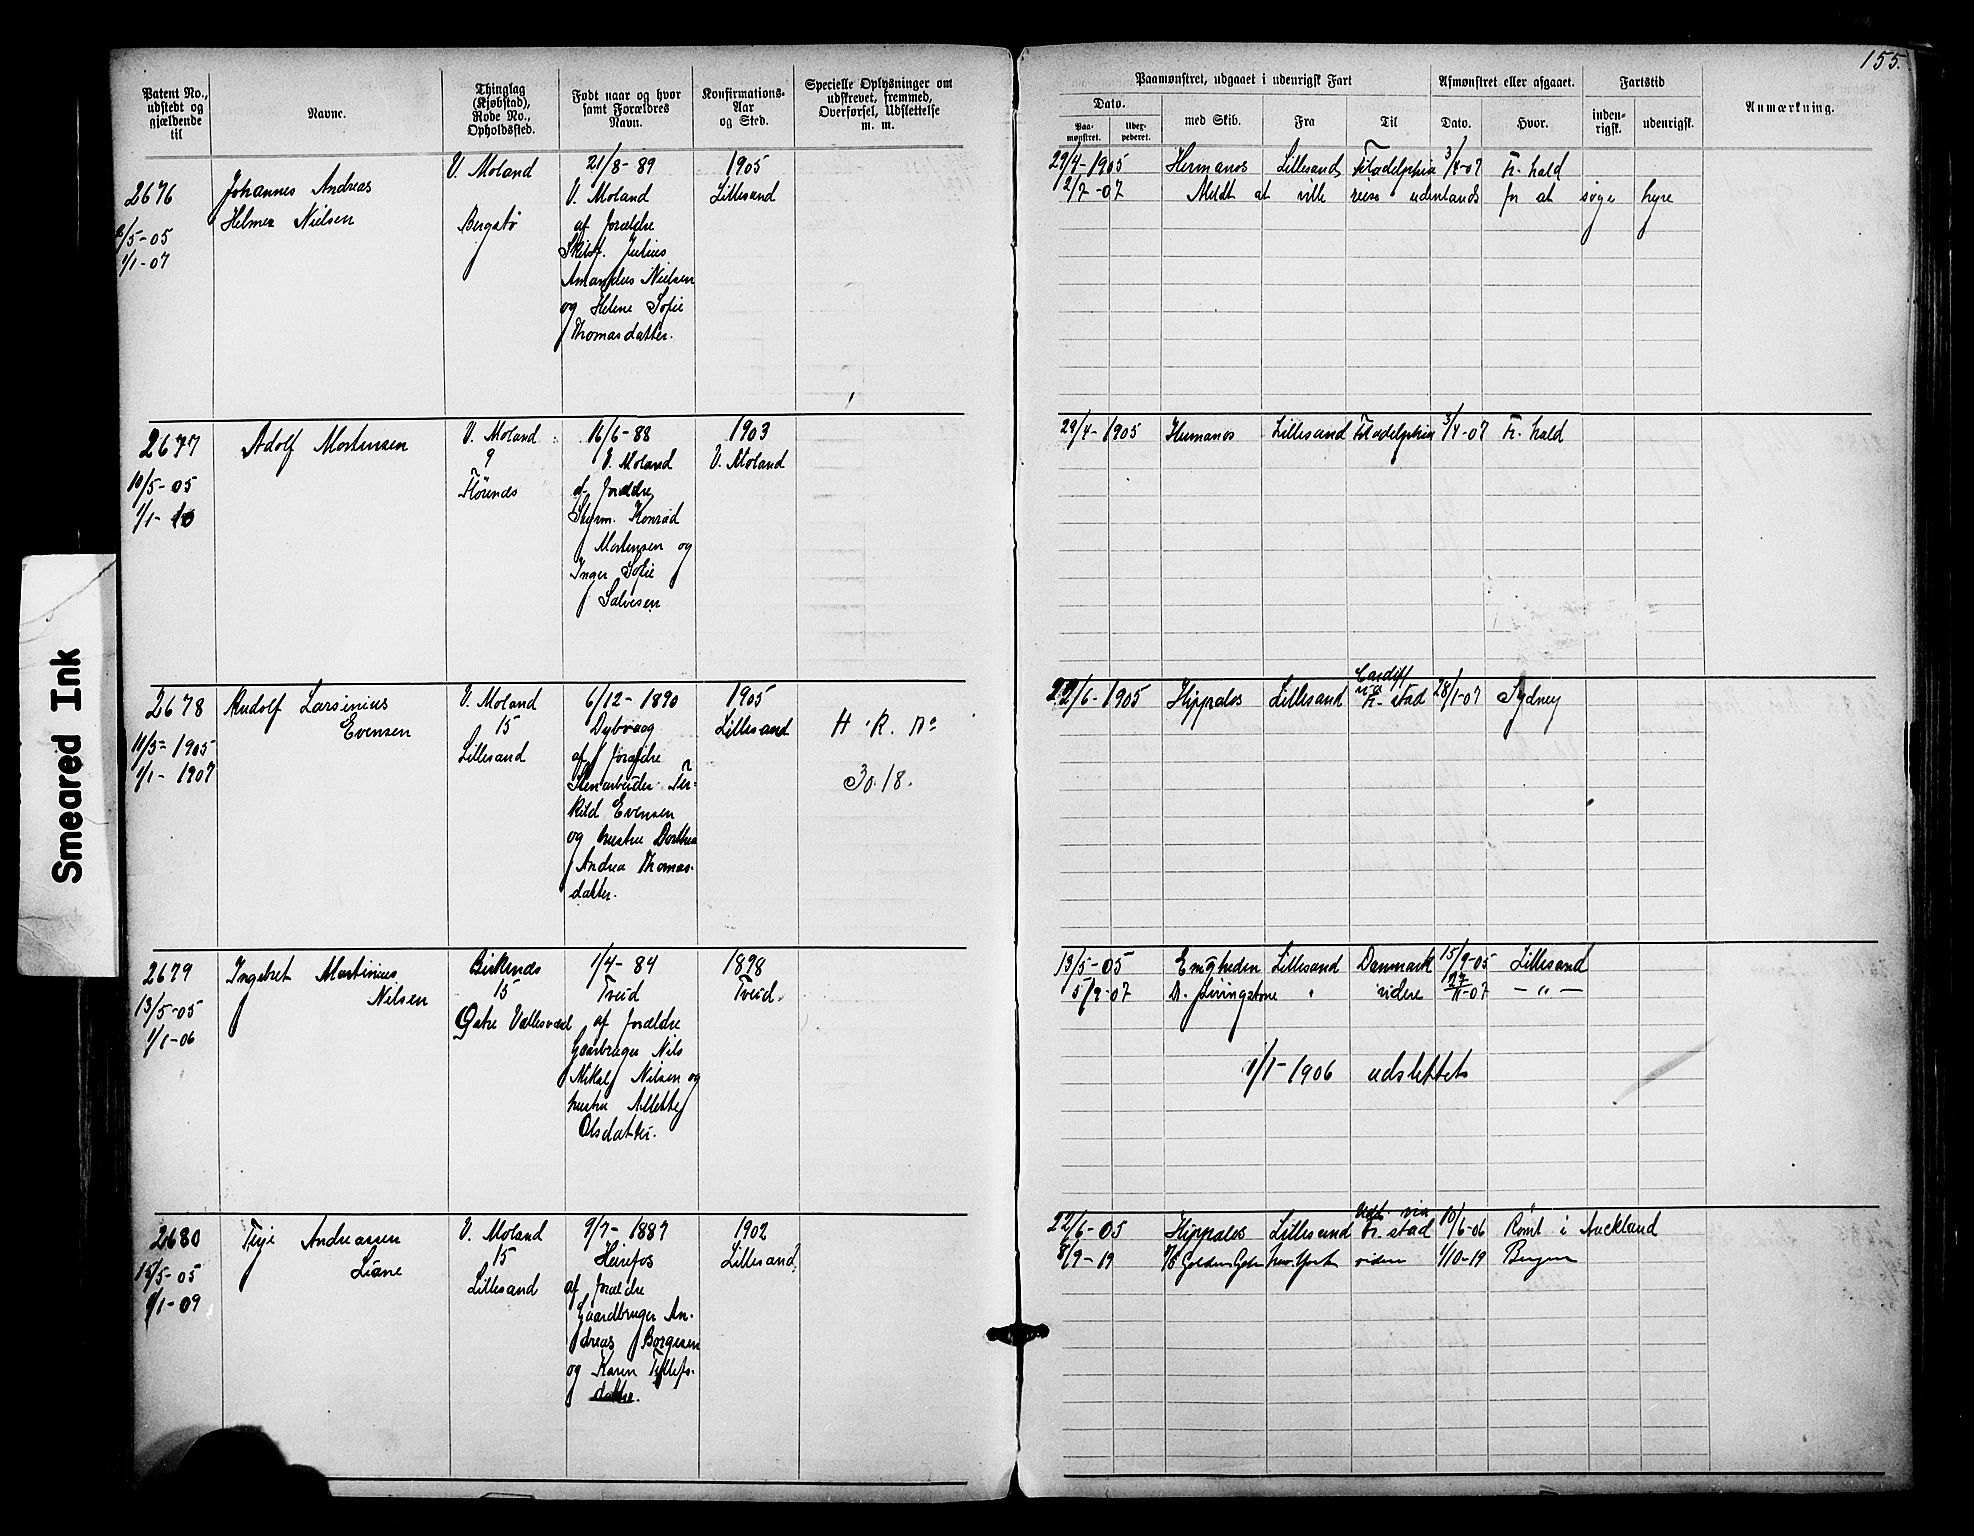 155.
Patent No., udstedt og gjældende til
Navne.
Thinglag (Kjøbstad), Rode No., Opholdssted.
Født naar og hvor samt Forældres Navn.
Konfirmations-Aar og Sted.
Specielle Oplysninger om udskrevet, fremmed, Overførsel, Udslettelse m. m.
Paamønstret, udgaaet i udenrigsk Fart
Afmønstret eller afgaaet.
Fartstid
Anmærkning.
Dato.
Paa-mønstret.
med Skib.
Fra
Til
Dato.
Hvor.
inden-rigsk.
udenrigsk.
2676
/5-05
1/1-07
Johannes Andreas
Helmer Nielsen
V. Moland
Bergstø
21/8-89
V. Moland
af Forældre
Skibsf. Julius
Amandus Nielsen
og Helene Sofie
Thomasdatter.
1905
Lillesand
29/4-1905 Hermanos Lillesand Filadelphia 3/4-07 Fr. hald
2/7-07 Meldt at ville reise udenlands for at søge hyre
2677
10/5-05
1/1-10
Adolf Mortensen
V. Moland
9
Flørends
16/6-88
V. Moland
af Forældre
Styrm. Konrad
Mortensen og
Inger Sofie
Salvesen
1903
V. Moland
29/4-1905 Hermanos Lillesand Filadelphia 3/4-07 Fr. hald
2678
11/5-1905
1/1-1907
Rudolf Larsinius
Evensen
V. Moland
15
Lillesand
6/12-1890
Dybvaag
af Forældre
Stenarbeider Ter-
kild Evensen
og hustru Dorthea
Andrea Thomas-
datter.
1905
Lillesand
H. R. No
30.18.
22/6-1905 Hippalos Lillesand Cardiff via Fr. stad 28/1-07 Sydney
2679
13/5-05
1/1-06
Ingebret Martinius
Nilsen
Birkenes
15
Østre Vallesværd
1/4-84
Tveid
af Forældre
Gaarbruger Nils
Mikael Nilsen og
hustru Allette
Olsdatter.
1898
Tveid.
13/5-05 Enigheden Lillesand Danmark 15/9-05 Lillesand
5/9-07 D. Livingstone " videre 27/11-07 — " —
1/1-1906 udslettet
2680
15/5-05
1/1-09
Teije Andreassen
Liane
V. Moland
15
Lillesand
9/7-1887
Heirefos
af Forældre
Gaardbruger An-
dreas Borgesen
og Karen Tellefs-
datter.
1902
Lillesand.
22/6-05 Hippalos Lillesand via Fr. stad 10/6-06 Rømt i Auckland
8/9-19 Golden Gate New York viden 1/10-19 Bergen
Smeared Ink